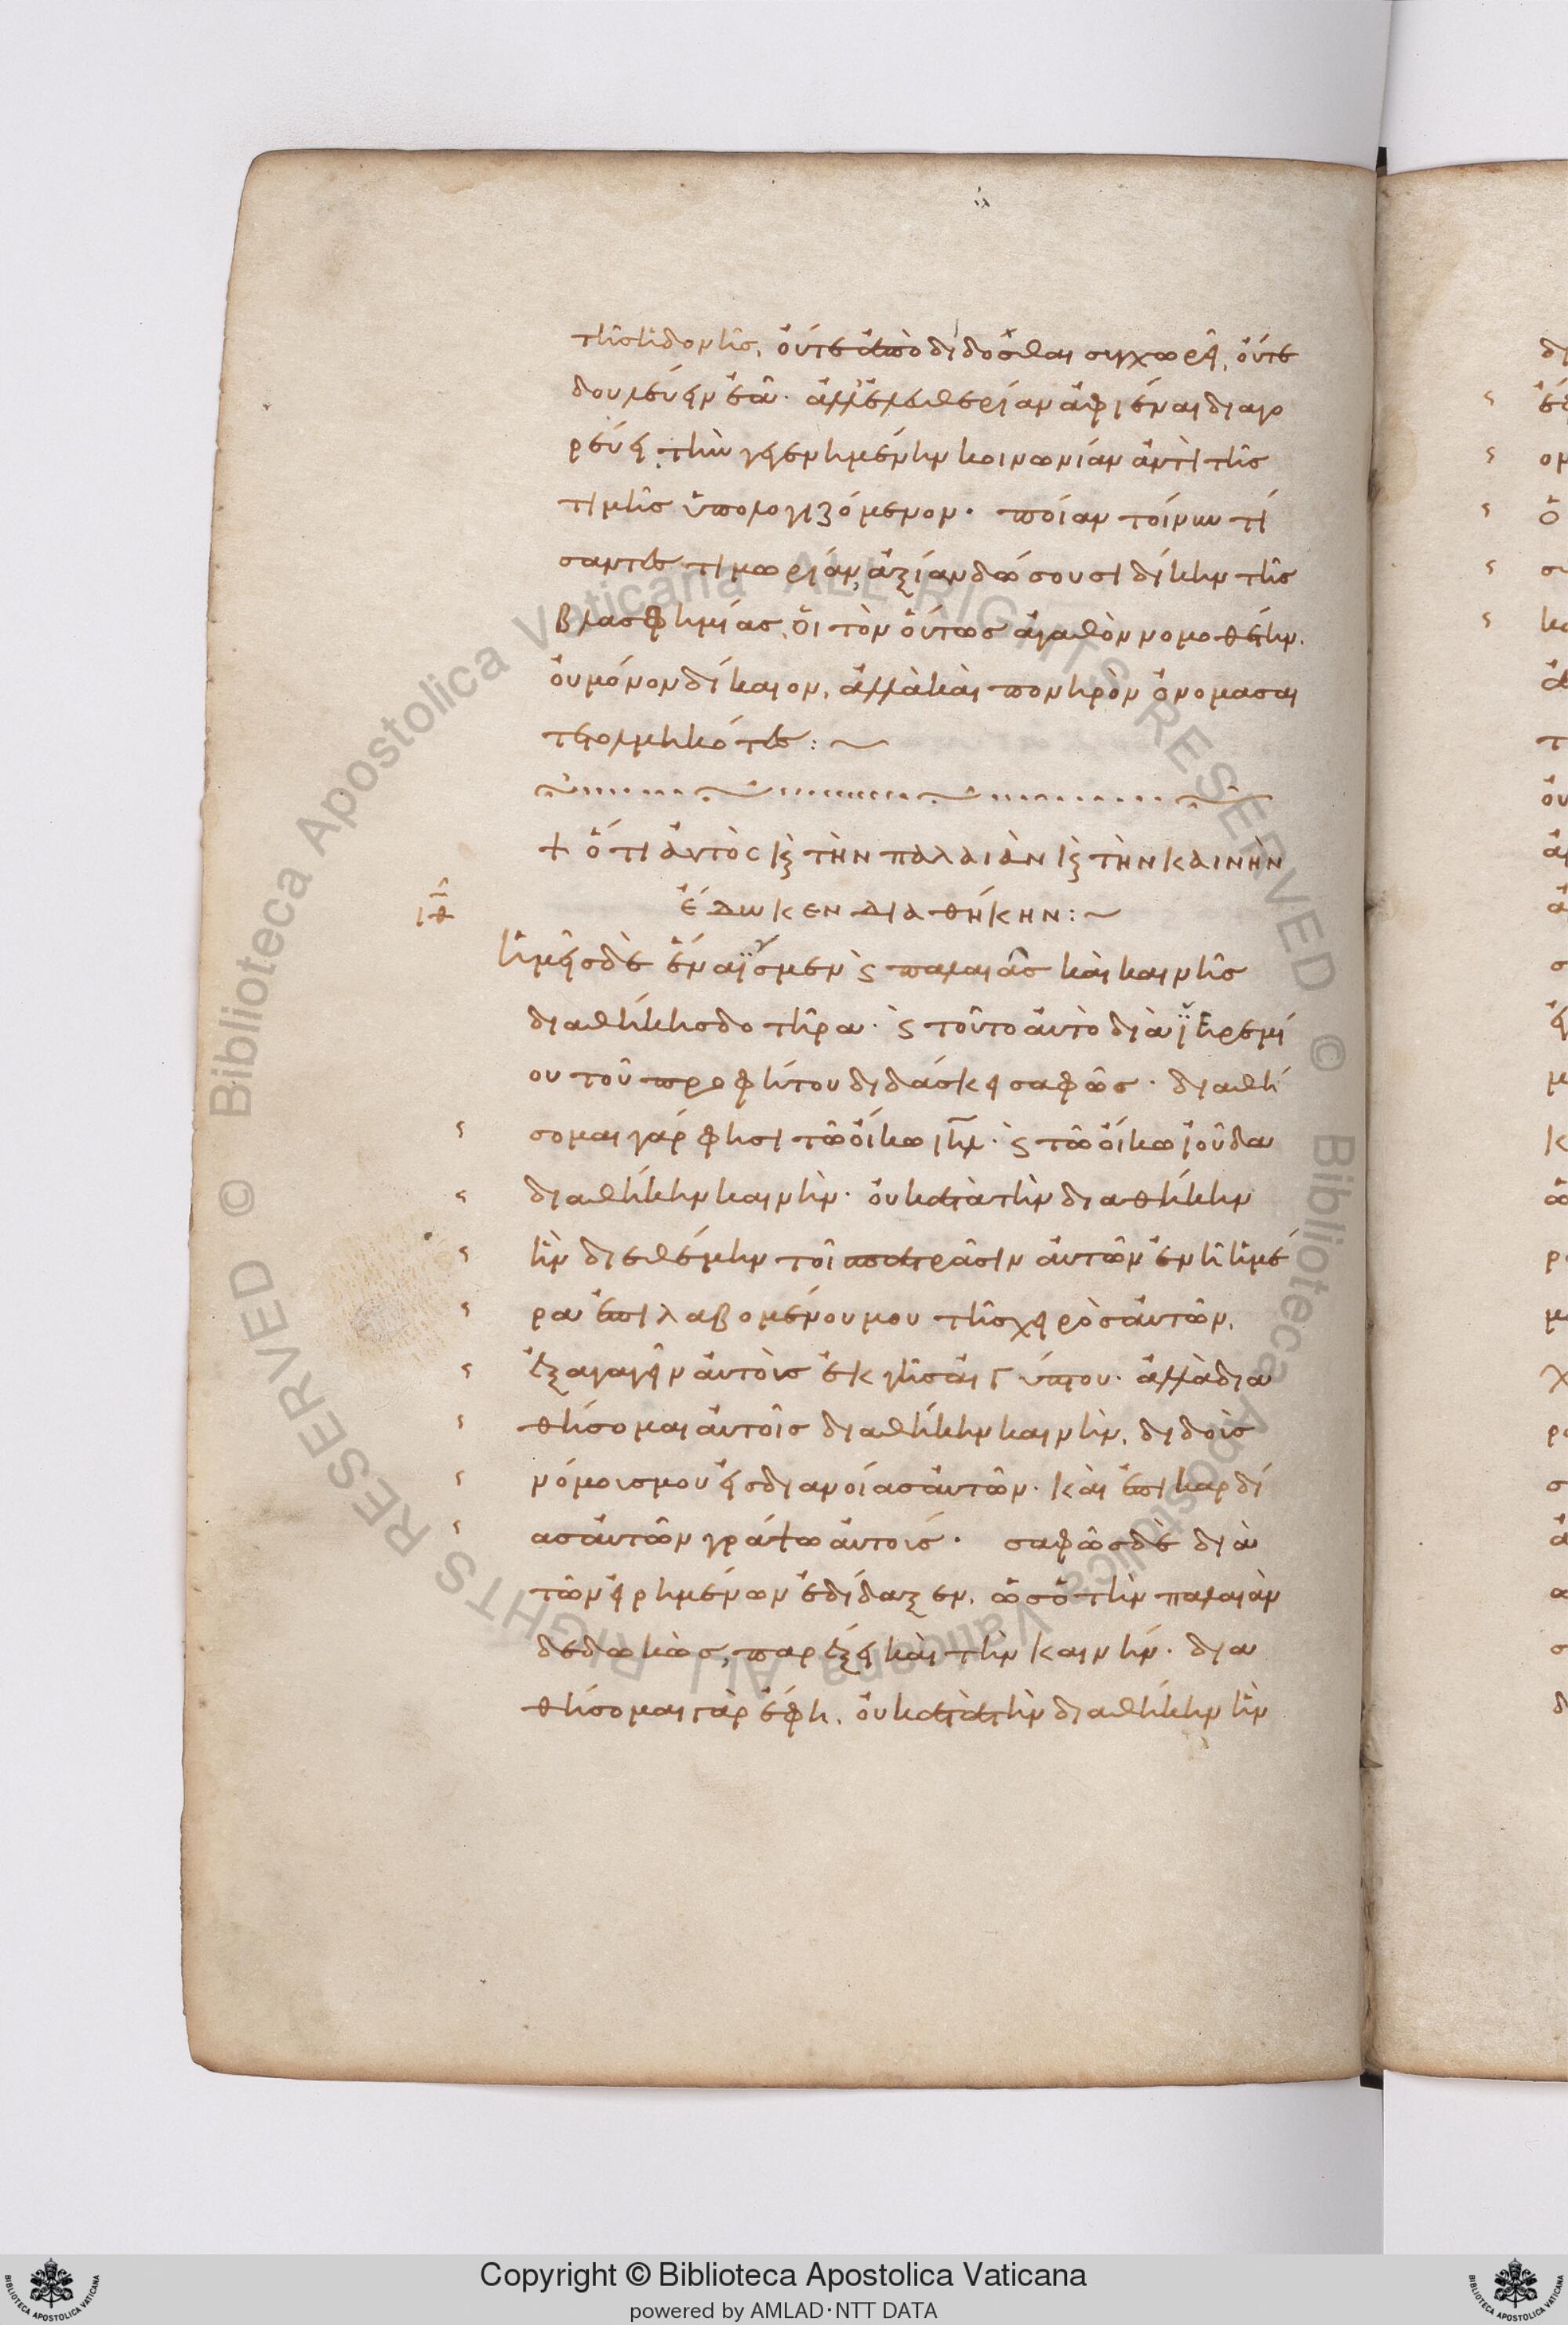 τῆς ἡδονῆς, οὔτε ἀποδίδοσθαι συγχωρεῖ, οὔτε
δουλεύειν ἐᾶ· ἀλλ' ἐλευθερίαν ἀφιέναι διαγο
ρεύει, τὴν γεγενημένην κοινωνίαν ἀντὶ τῆς
τιμῆς ὑπολογιζόμενον· ποίαν τοίνυν τί
σαντες τιμωρίαν, ἀξίαν δώσουσι δίκην τῆς
βλασφημίας, οἱ τὸν οὕτως ἀγαθὸν νομοθέτην.
οὐ μόνον δίκαιον, ἀλλὰ καὶ πονηρὸν ὀνομάσαι
τετολμηκότες:
+ ὅτι αὐτὸς κ τὴν παλαιὰν κ τὴν καινὴν
ιθ
ἔδωκεν διαθήκην:
ἡμεῖς δὲ ἕνα ἴσμεν ϛ παλαιᾶς καὶ καινῆς
διαθήκης δοτῆρα· ϛ τοῦτο αὐτὸ διὰ ἱερεμί
ου τοῦ προφήτου διδάσκει σαφῶς· διαθή
σομαι γάρ φησι τῶ οἴκω ιηλ· ϛ τῶ οἴκω ἰούδα
διαθήκην καινὴν· οὐ κατὰ τὴν διαθήκην
ἣν διεθέμην τοῖ πατράσιν αὐτῶν ἐν ἧ ἡμέ
ρα ἐπιλαβομένου μου τῆς χειρὸς αὐτῶν,
ἐξαγαγεῖν αὐτοὺς ἐκ γῆς αἰγύπτου· ἀλλὰ δια
θήσομαι αὐτοῖς διαθήκην καινὴν, διδοὺς
νόμους μου εἰς διανοίας αὐτῶν· καὶ ἐπὶ καρδί
ας αὐτῶν γράψω αὐτούς· σαφῶς δὲ διὰ
τῶν εἰρημένων ἐδίδαξεν, ὡς ὁ τὴν παλαιὰν
δεδωκὼς, παρέξει καὶ τὴν καινήν· δια
θήσομαι γὰρ ἔφη, οὐ κατὰ τὴν διαθήκην ἣν
Copyright © Biblioteca Apostolica Vaticana
powered by AMLAD·NTT DATA